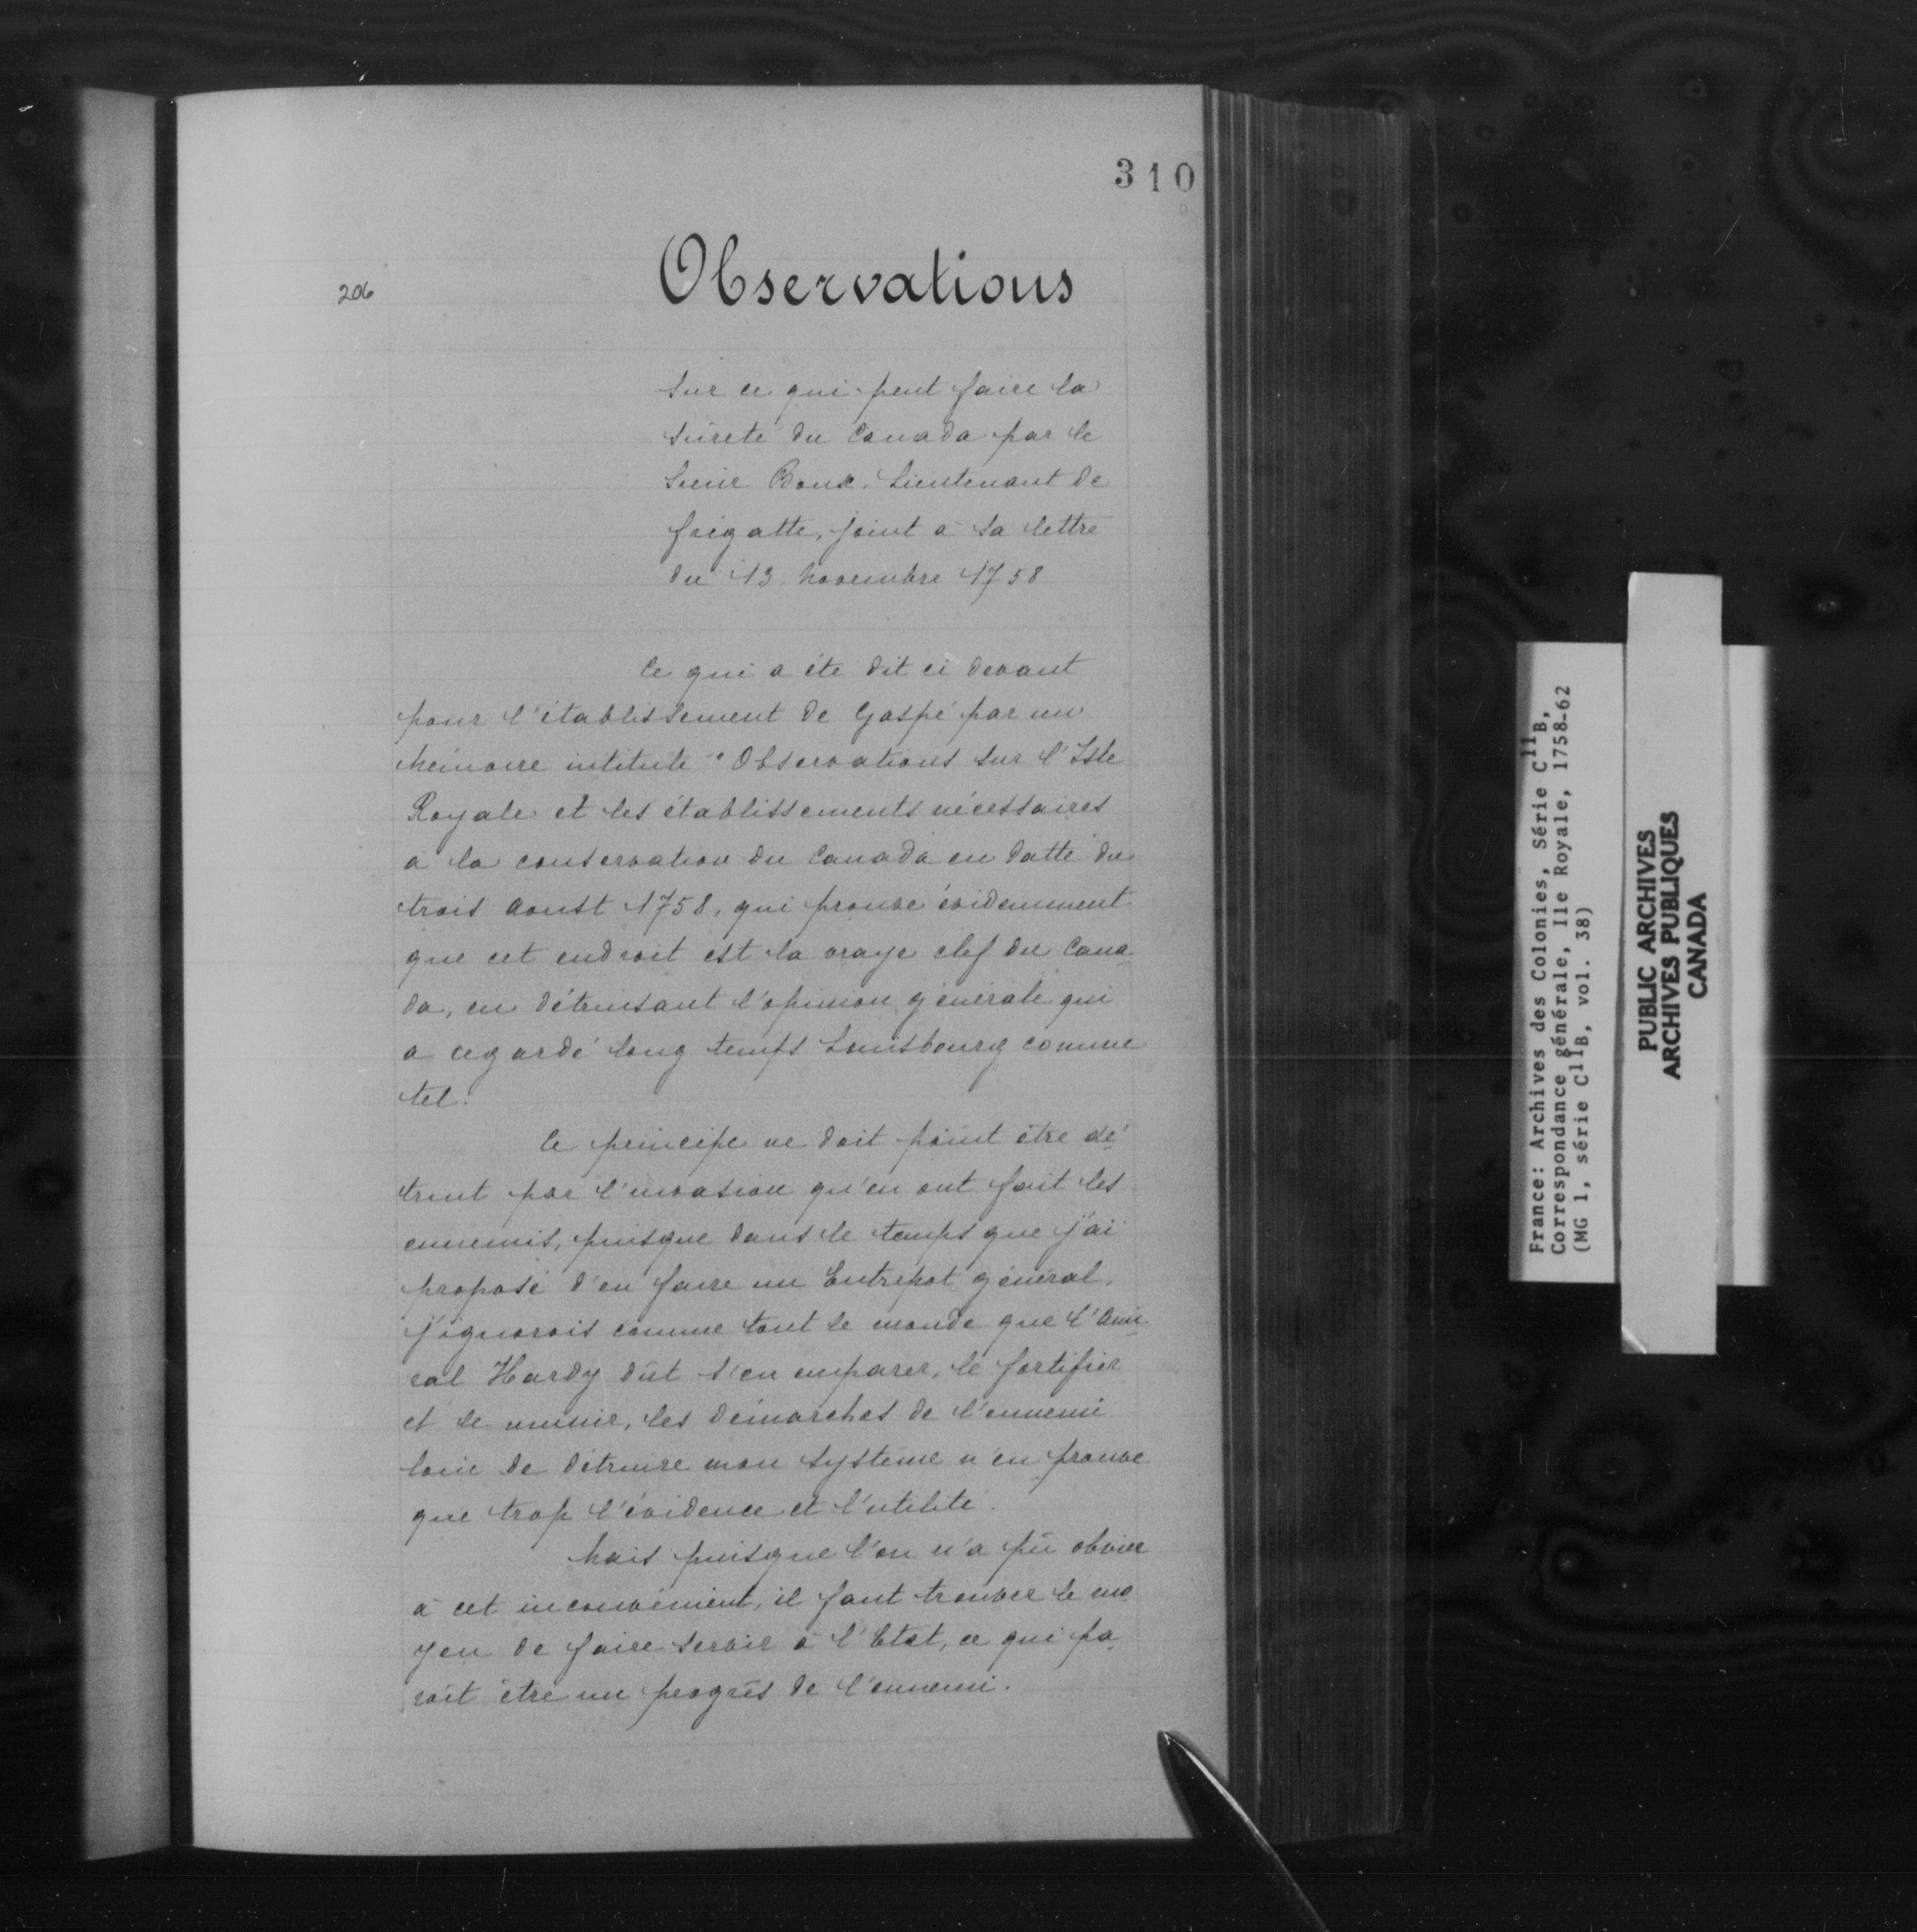 310
206
Observations
sur ce qui peut faire la
sûreté du Canada par le
Sieur Boux, Lieutenant de
frégatte, joint à sa lettre
du 13 novembre 1758
Ce qui a été dit ci devant
pour l'établissement de Gaspé par un
mémoire intitulé "Observations sur l'Isle
Royale et les établissements nécessaires
à la conservation du Canada en datte du
trois aoust 1758, qui prouve évidemment
que cet endroit est la vraye clef du Cana
da, en détruisant l'opinion générale qui
a regardé long temps Louisbourg comme
tel.
Ce principe ne doit point être dé
truit par l'invasion qu'en ont fait les
ennemis, puisque dans le temps que j'ai
proposé d'en faire un Entrepot général,
j'ignorois comme tout le monde que l'ami
ral Hardy dût s'en emparer, le fortifier
et le munir, les démarches de l'ennemi
loin de détruire mon système n'en prouve
que trop l'évidence et l'utilité.
Mais puisque l'on n'a pû obvier
à cet inconvénient, il faut trouver le mo
yen de faire servir à l'Etat, ce qui pa
roit être un progrès de l'ennemi.
France: Archives des Colonies, Série C11B,
Correspondance générale, Ile Royale, 1758-62
(MG 1, série C11B, vol. 38)
PUBLIC ARCHIVES
ARCHIVES PUBLIQUES
CANADA